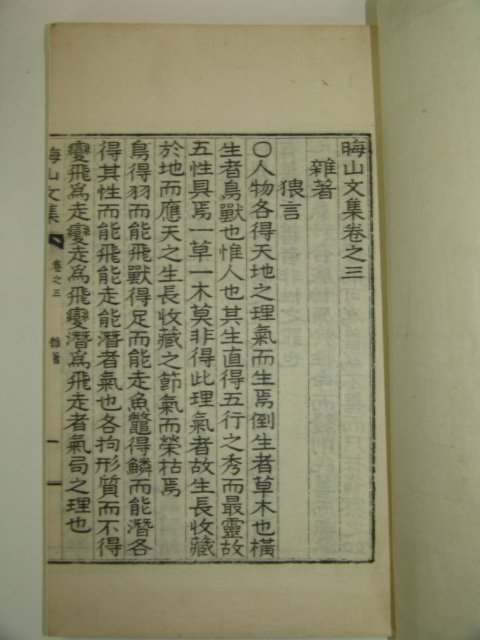 晦山文集卷之三
雜著
猥言
○人物各得天地之理氣而生焉倒生者草木也橫
生者鳥獸也惟人也其生直得五行之秀而最靈故
五性具焉一草一木莫非得此理氣者故生長收藏
於地而應天之生長收藏之節氣而榮枯焉
鳥得羽而能飛獸得足而能走魚鼈得鱗而能潛各
得其性而能飛能走能潛者氣也各拘形質而不得
變飛爲走變走爲飛變潛爲飛走者氣局之理也
晦山文集
卷之三
雜著